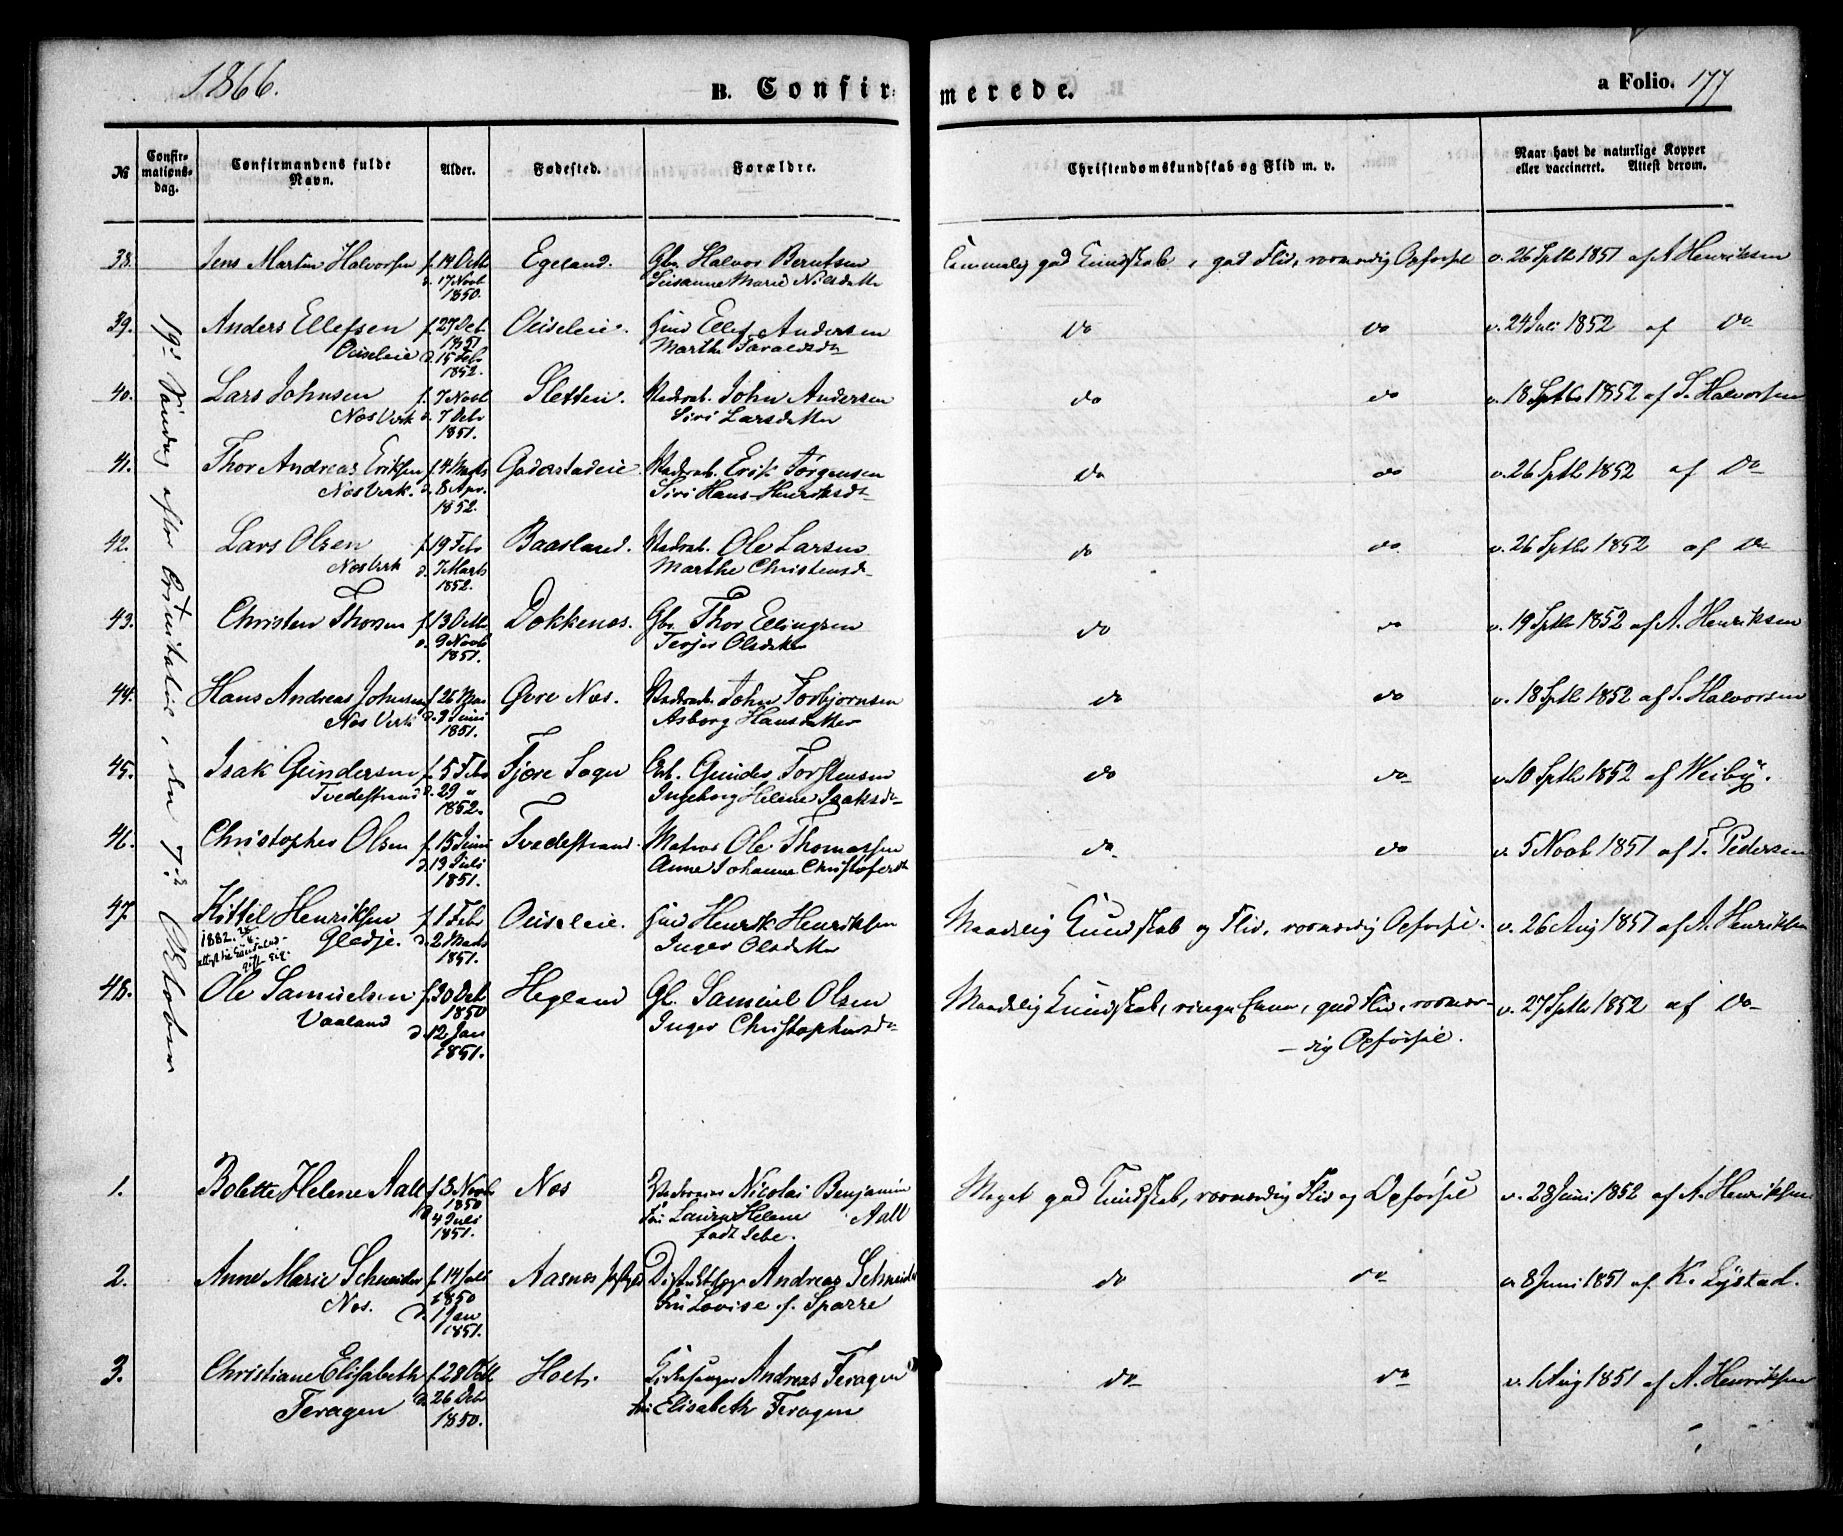 1866.
B. Confir- merede.
a Folio. 177
№
Confir-
mations-
dag.
Confirmandens fulde
Navn.
Alder.
Fødested.
Forældre.
Christendomskundskab og Flid m. v.
Naar havt de naturlige Kopper
eller vaccineret. Attest derom.
19de Søndag efter Trinitatis, den 7de October
38. Jens Martin Halvorsen f. 14 Octb Egeland. Gbr. Halvor Berntsen Temmelig god Kundskab, god Flid, sømmelig Opførsel v. 26 Sptb 1851 af A Henriksen
d. 17 Novb Susanne Marie Nilsdatter
1850.
39. Anders Ellefsen f. 27 Deb. Ouseleie. Huusm Ellef Andersen do do v. 24 Juli 1852 af Do
Ouseleie 1851 Marthe Taraldsdt
d. 15 Feb
1852.
40. Lars Johnsen f. 7 Novb Sletten. John Andersen do do v. 18 Sptb 1852 af S. Halvorsen
Næs Verk d. 7 Debr Siri Larsdatter
1851.
41. Thor Andreas Eriksen f. 4 Marts Godastadeie. Erik Jørgensen do do v. 26 Sptb 1852 af Do
Næs Verk. d. 8 Apr. Siri Hans-Henriksdt
1852.
42. Lars Olsen f. 19 Feb Baasland. Ole Larsen do do v. 26 Sptb 1852 af Do
Næs Verk d. 7 Marts Marthe Christensd
1852.
43. Christen Thorsen f. 13 Octb Dokkenæs. Gbr. Thor Ellingsen do do v. 19 Sptb 1852 af A. Henriksen
d. 9 Novb Terjer Olsdatter
1851.
44. Hans Andreas Johnsen f. 26 Mai Øvre Næs. John Torbjørnsen do do v. 18 Sptb 1852 af S. Halvorsen
Næs Verk d. 9 Juni Asborg Hansdatter
1851.
45. Isak Gundersen f. 5 Feb Fjære Sogn Gunder Torstensen do do v. 10 Sptb 1852 af Weiby.
Tvedestrand d. 29 " Ingeborg Helene Isaksd
1852.
46. Christopher Olsen f. 15 Juni Tvedestrand Matros Ole Thomassen do do v. 5 Novb 1851 af T. Pedersen
d. 19 Juli Anne Johanne Christofersdt
1851.
47. Kittil Henriksen f. 1 Feb Ouseleie. Huusm Henrik Henriksen Maadelig Kundskab og Flid, sømmelig Opførsel. v. 26 Aug 1851 af A. Henriksen
1882. Gledje. d. 2 Marts Inger Olsdatter
1851.
48. Ole Samuelsen f. 30 Deb Hegland Gb. Samuel Olsen Maadelig Kundskab, ringe Evner, god Flid, v. 27 Sptb 1852 af Do
Vaaland 1850 Inger Christophersd
d. 12 Jan Opførsel.
1851.
1. Bolette Helene Aall f. 3 Novb Næs Nicolai Benjamin Meget god Kundskab, Flid og Opførsel v. 28 Juni 1852 af A. Henriksen
1850 Fru Laura Helene Aall
d. 4 Juli født
1851.
2. Anne Marie Schneider f. 14 Juli Aasnæs Andreas Schneider do do v. 8 Juni 1851 af K. Lystad.
Næs. 1850 Fru Lovise f. Sparre
d. 1 Jan
1851.
3. Christiane Elisabeth f. 28 Octb Holt. Kirkesanger Andreas Feragen do do v. 1 Aug 1851 af A. Henriksen
Feragen d. 26 Debr Fru Elisabeth Feragen
1850.